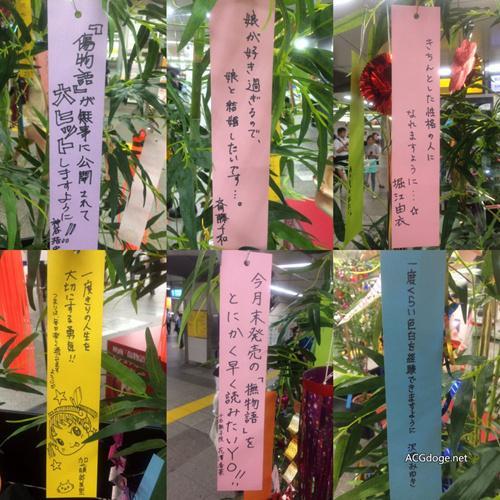 『傷物語』が無事に公開されて
大ヒットしますように!!
娘が好き過ぎるので、
娘と結婚したいです…。
斎藤千和
きちんとした性格の人に
なれますように…☆
堀江由衣
一度きりの人生を
大切にする勇気を!!
加藤英美里
今月末発売の『撫物語』を
とにかく早く読みたいYO!!
花澤香菜
一度くらい色白を経験できますように 沢城みゆき
ACGdoge.net